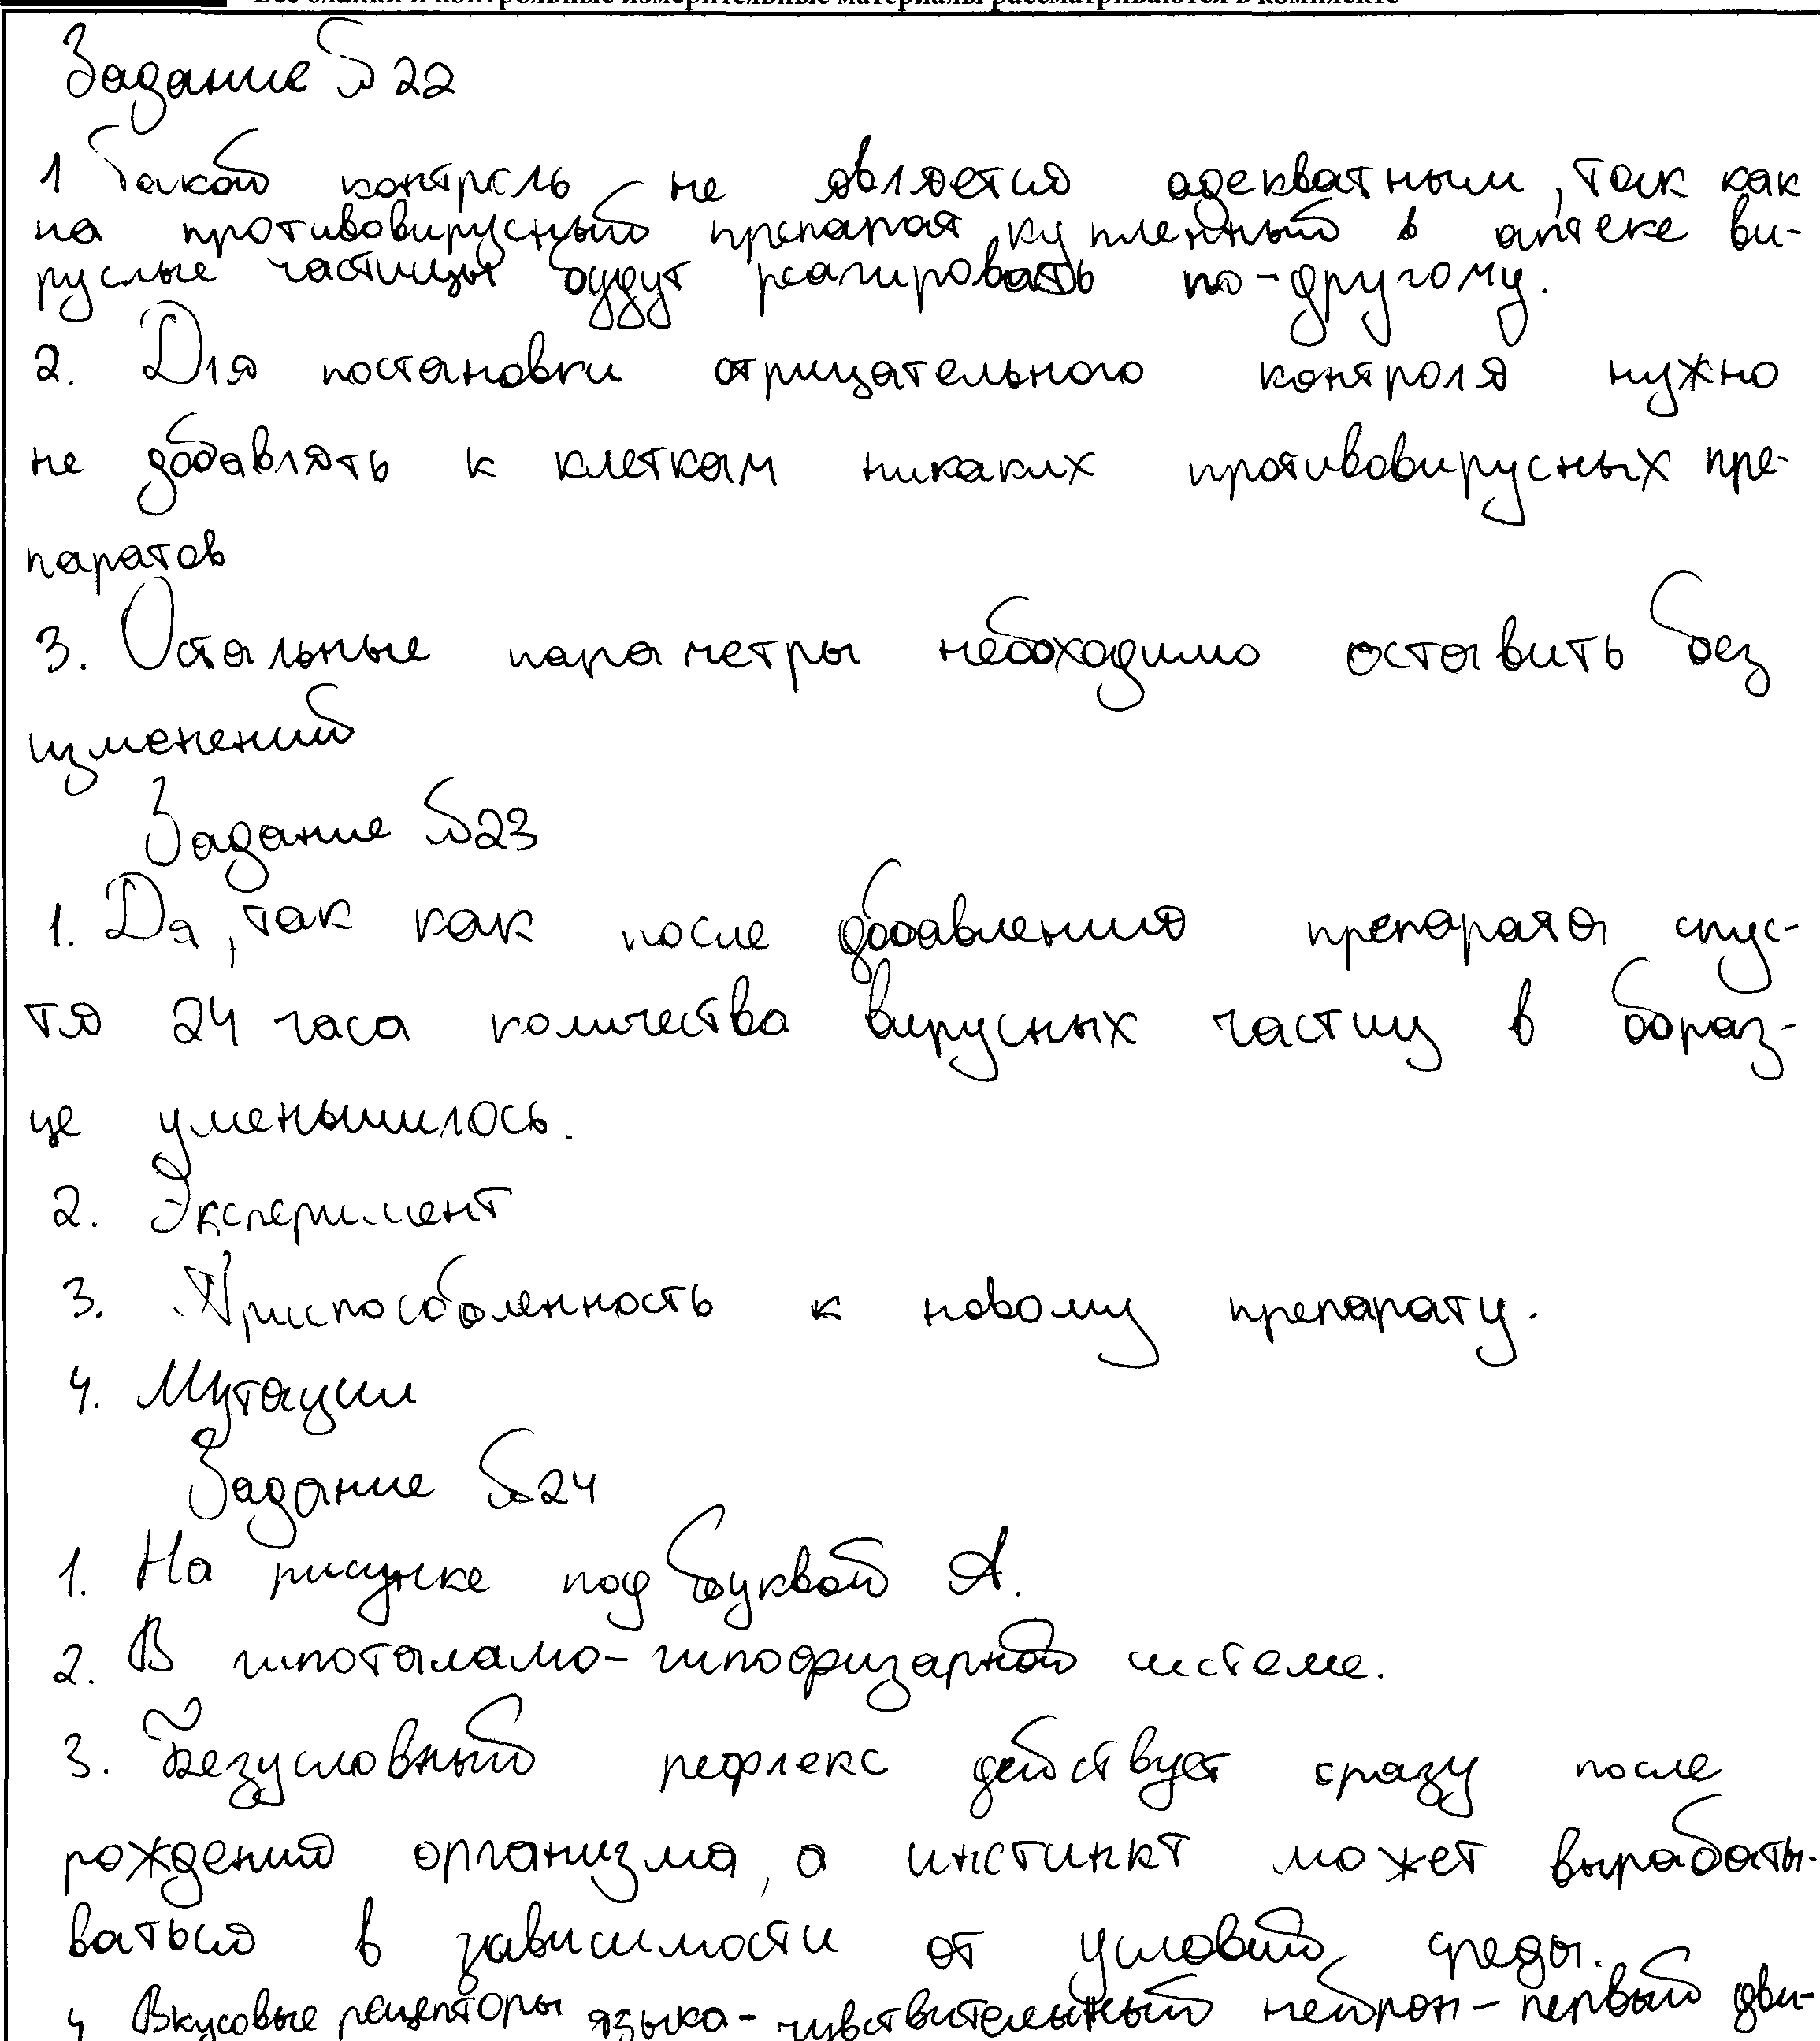 Все бланки и контрольные измерительные материалы рассматриваются в комплекте
Задание №22
1 Такой контроль не является адекватным, так как
на противовирусный препарат купленный в аптеке ви-
русные частицы будут реагировать по-другому.
2. Для постановки отрицательного контроля нужно
не добавлять к клеткам никаких противовирусных пре-
паратов
3. Остальные параметры необходимо оставить без
изменений
Задание №23
1. Да, так как после добавления препарата спус-
тя 24 часа количества вирусных частиц в образ-
це уменьшилось.
2. Эксперимент
3. Приспособленность к новому препарату.
4. Мутации
Задание №24
1. На рисунке под буквой А.
2. В гипоталамо-гипофизарной системе.
3. Безусловный рефлекс действует сразу после
рождений организма, а инстинкт может вырабаты-
ваться в зависимости от условий среды.
4 Вкусовые рецепторы языка - чувствительный нейрон - первый дви-